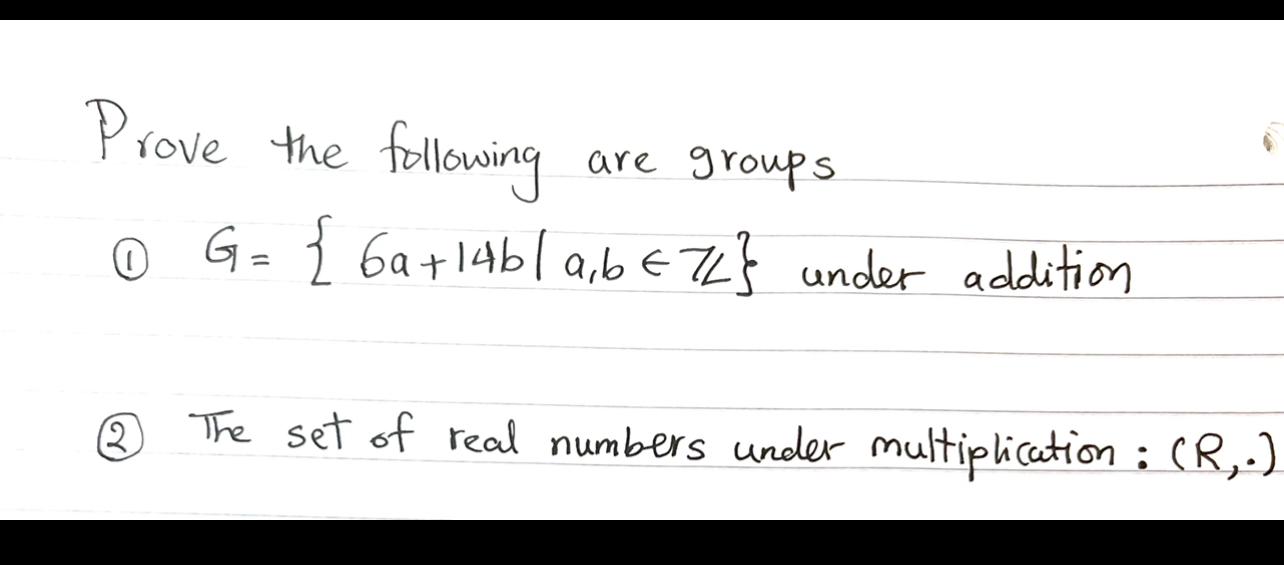 Prove the following are groups
① G = { 6a+14b | a,b ∈ ℤ} under addition
② The set of real numbers under multiplication : (R,·)